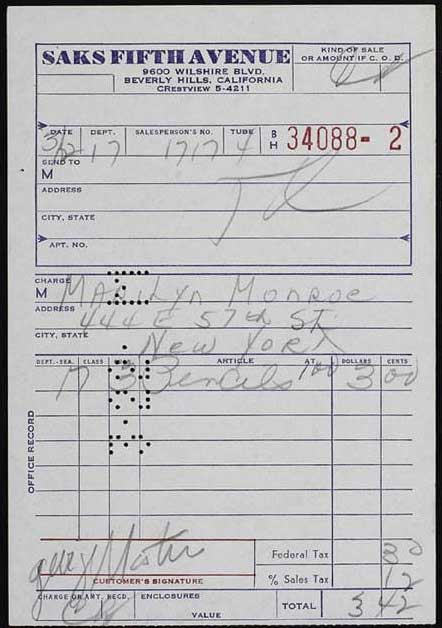 SAKS FIFTH AVENUE
9600 WILSHIRE BLVD.
BEVERLY HILLS, CALIFORNIA
CRESTVIEW 5-4211
KIND OF SALE
OR AMOUNT IF C. O. D.
DATE DEPT. SALESPERSON'S NO. TUBE B H 34088- 2
3/2 17 1717 4
SEND TO
M
ADDRESS
CITY, STATE
APT. NO.
CHARGE
M Marilyn Monroe
ADDRESS 444 E 57th St.
CITY, STATE New York
DEPT.-SEA. CLASS ARTICLE AT DOLLARS CENTS
17 3 Pencils 100 3 00
OFFICE RECORD
CUSTOMER'S SIGNATURE
Federal Tax 30
% Sales Tax 12
CHARGE OR AMT. RECD. ENCLOSURES
VALUE
TOTAL 3 42